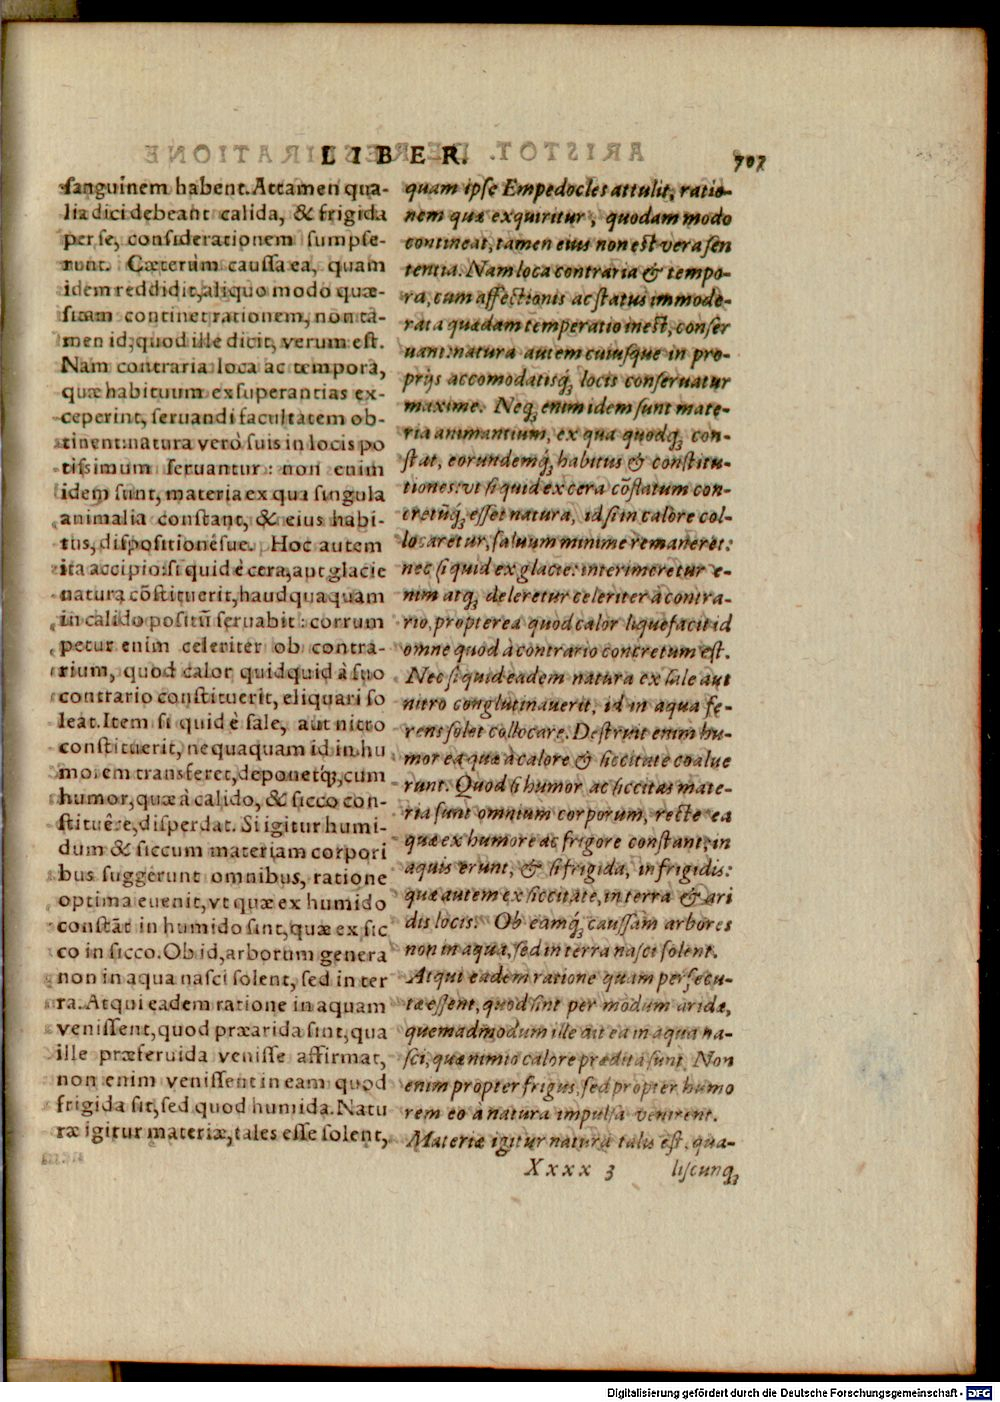 LIBER. 707
sanguinem habent. Attamen qua-
lia dici debeant calida, & frigida
per se, considerationem sumpse-
runt. Cæterùm caussa ea, quam
idem reddidit, aliquo modo quæ-
sitam continet rationem, non ta-
men id, quod ille dicit, verum est.
Nam contraria loca ac tempora,
quæ habituum exsuperantias ex-
ceperint, seruandi facultatem ob-
tinent: natura verò suis in locis po
tissimum seruantur: non enim
idem sunt, materia ex qua singula
animalia constant, & eius habi-
tus, dispositionésue. Hoc autem
ita accipio: si quid è cera, aut glacie
natura cōstituerit, haudquaquam
in calido positū seruabit: corrum
petur enim celeriter ob contra-
rium, quod calor quidquid à suo
contrario constituerit, eliquari so
leat. Item si quid è sale, aut nitro
constituerit, nequaquam id in hu
morem transferet, deponetq́, cum
humor, quæ à calido, & sicco con-
stituêre, disperdat. Si igitur humi-
dum & siccum materiam corpori
bus suggerunt omnibus, ratione
optima euenit, vt quæ ex humido
constāt in humido sint, quæ ex sic
co in sicco. Ob id, arborum genera
non in aqua nasci solent, sed in ter
ra. Atqui eadem ratione in aquam
venissent, quod præarida sint, qua
ille præferuida venisse affirmat,
non enim venissent in eam quod
frigida sit, sed quod humida. Natu
ræ igitur materiæ, tales esse solent,
quam ipse Empedocles attulit, ratio-
nem quæ exquiritur, quodam modo
contineat, tamen eius non est vera sen
tentia. Nam loca contraria & tempo-
ra, cum affectionis ac status immode-
rata quædam temperatio inest, conser
uant: natura autem cuiusque in pro-
prijs accomodatisq́ locis conseruatur
maxime. Neq; enim idem sunt mate-
ria animantium, ex qua quodq; con-
stat, eorundemq́ habitus & constitu-
tiones: vt si quid ex cera cōflatum con-
cretūq́ esset natura, id si in calore col-
locaretur, saluum minime remaneret:
nec si quid ex glacie: interimeretur e-
nim atq; deleretur celeriter à contra-
rio, propterea quod calor liquefacit id
omne quod à contrario concretum est.
Nec si quid eadem natura ex sale aut
nitro conglutinauerit, id in aqua fe-
rens solet collocare. Destruit enim hu-
mor ea quæ à calore & siccitate coalue
runt. Quod si humor ac siccitas mate-
ria sunt omnium corporum, recte ea
quæ ex humore ac frigore constant, in
aquis erunt, & si frigida, in frigidis:
quæ autem ex siccitate, in terra & ari
dis locis. Ob eamq́ caussam arbores
non in aqua, sed in terra nasci solent.
Atqui eadem ratione quam persecu-
tæ essent, quod sint per modum aridæ,
quemadmodum ille ait ea in aqua na-
sci, quæ nimio calore prædita sunt. Non
enim propter frigus, sed propter humo
rem eo à natura impulsa venirent.
Materiæ igitur natura talis est, qua-
Xxxx 3 liscunq;
Digitalisierung gefördert durch die Deutsche Forschungsgemeinschaft - DFG